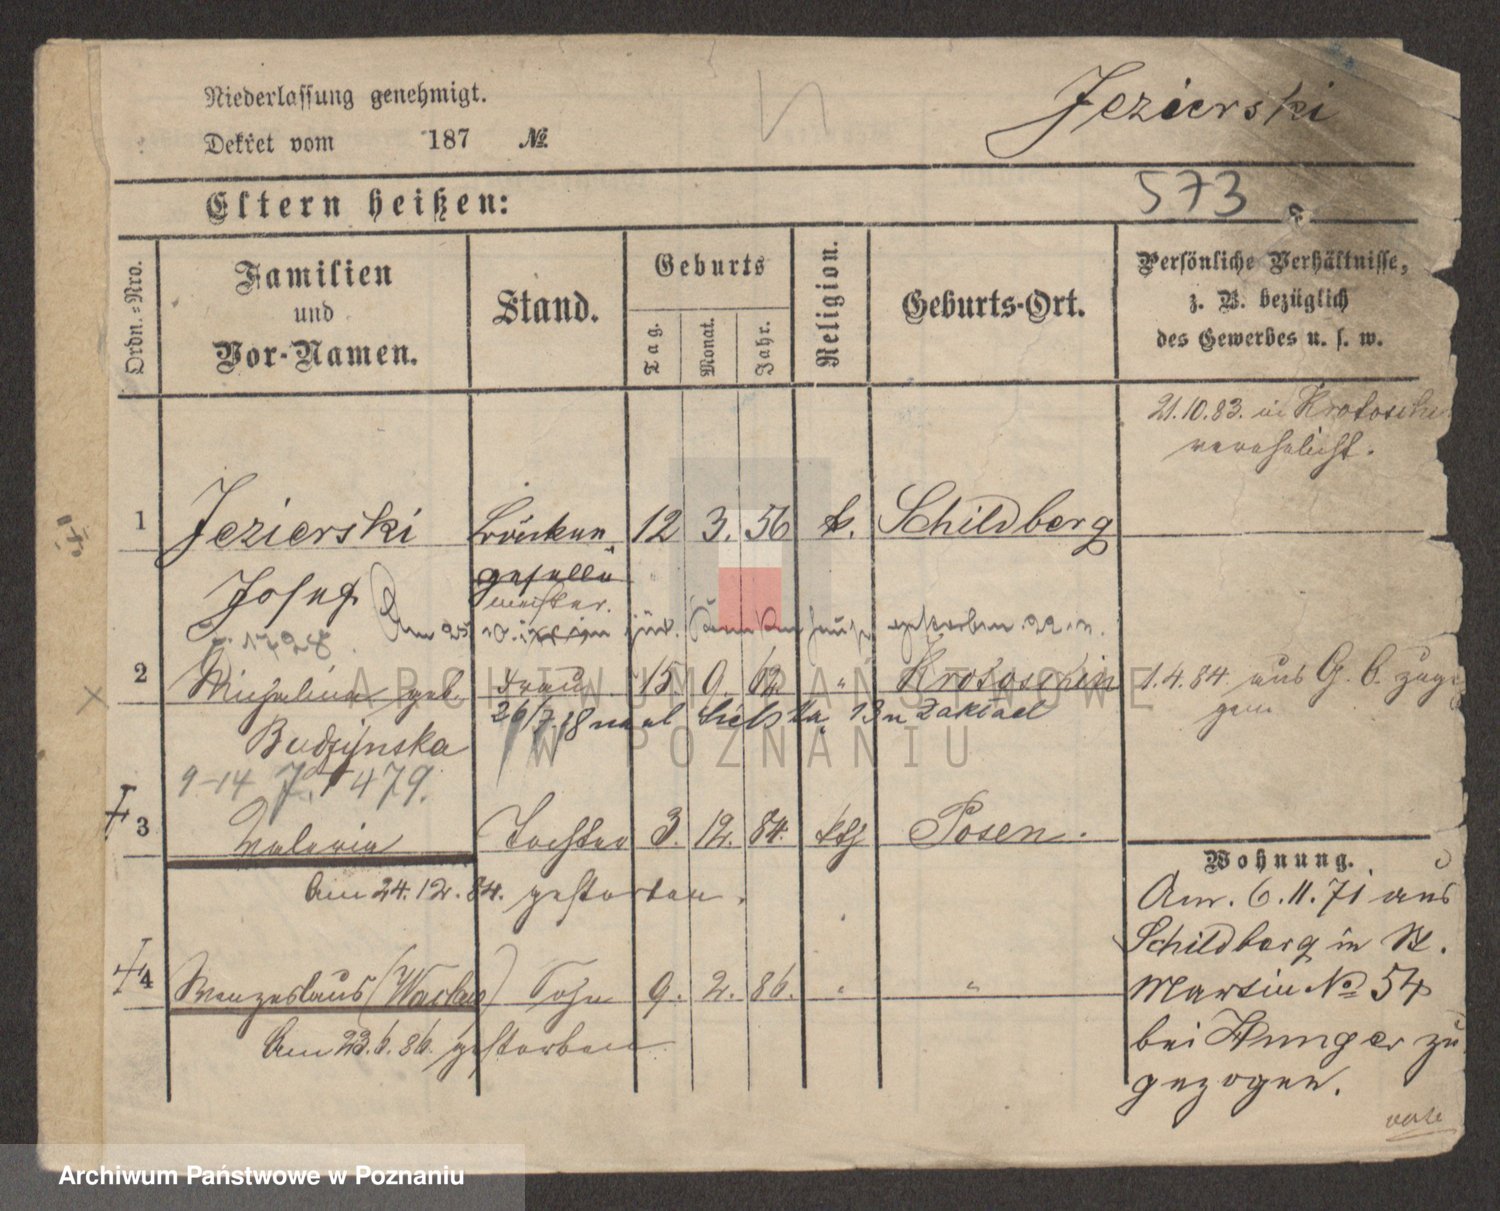 Niederlassung genehmigt.
Jezierski
Dekret vom 187 №
Eltern heißen:
573
Ordn.-Nro.
Familien
und
Vor-Namen.
Stand.
Geburts
Tag.
Monat.
Jahr.
Religion.
Geburts-Ort.
Persönliche Verhältnisse,
z. B. bezüglich
des Gewerbes u. s. w.
21.10.83. in Krotoschin
verehelicht.
1 Jezierski 12 3. 56 k. Schildberg
Josef geselle
meister.
gestorben
2 Michalina geb. Frau 15. 9. 62 " Krotoschin
1.4.84. aus G. C. zuge
Budzynska
9-14 479.
3 Valeria Tochter 3. 12. 84. kth Posen.
Am 24.12.84. gestorben.
4 Wenzeslaus (Waclaw) Sohn 9. 2. 86. " "
Am 23.6.86. gestorben
Wohnung.
Am. 6.11.71 aus
Schildberg in St.
Martin No 54
bei Hunger zu
gezogen.
ARCHIWUM PAŃSTWOWE
W POZNANIU
Archiwum Państwowe w Poznaniu